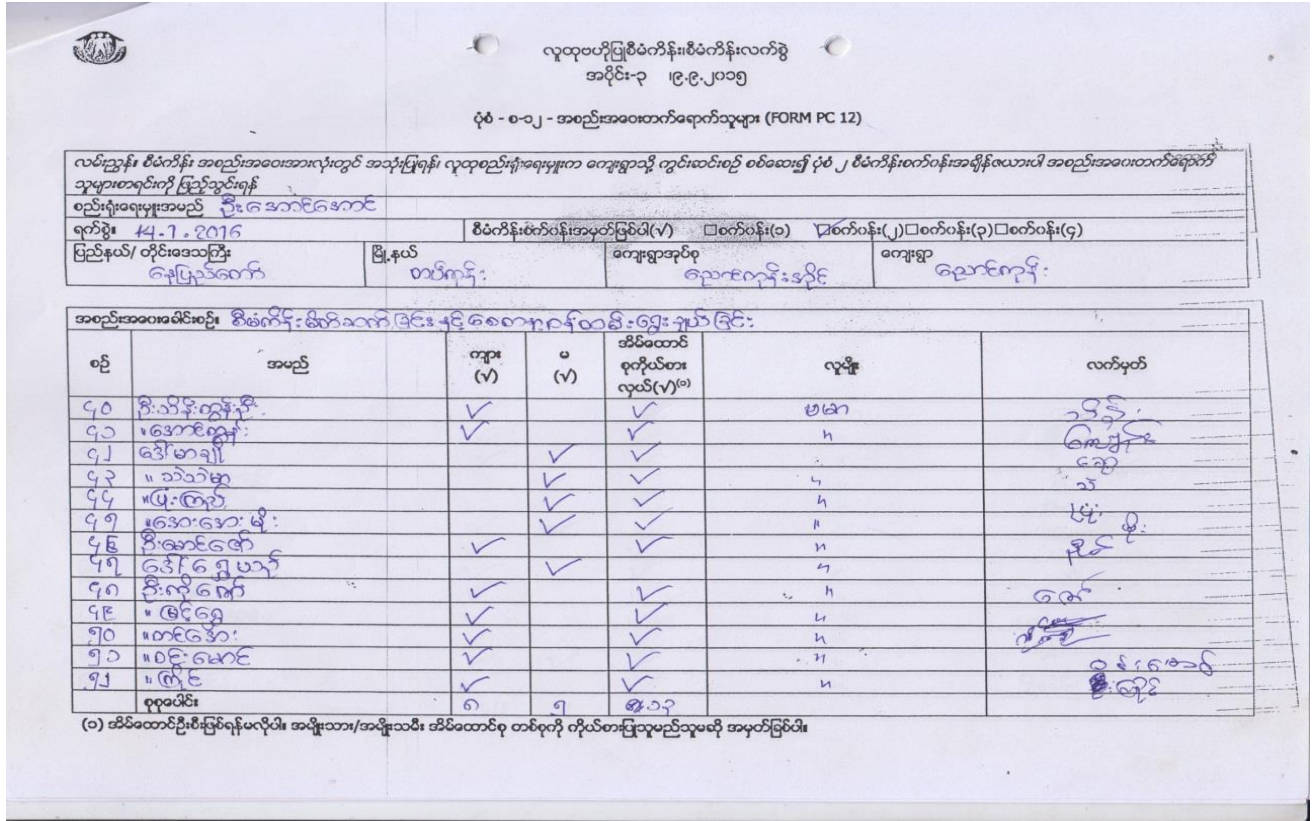 လူထုဗဟိုပြုစီမံကိန်း၊စီမံကိန်းလက်စွဲ
အပိုင်း-၃ ၊၉.၉.၂၀၁၅
ပုံစံ - စ-၁၂ - အစည်းအဝေးတက်ရောက်သူများ (FORM PC 12)
လမ်းညွှန်။ စီမံကိန်း အစည်းအဝေးအားလုံးတွင် အသုံးပြုရန်၊ လူထုစည်းရုံးရေးမှူးက ကျေးရွာသို့ ကွင်းဆင်းစဉ် စစ်ဆေး၍ ပုံစံ ၂ စီမံကိန်းစက်ဝန်းအချိန်ဇယားပါ အစည်းအဝေးတက်ရောက်
သူများစာရင်းကို ဖြည့်သွင်းရန်
စည်းရုံးရေးမှူးအမည် ဦးအောင်အောင်
ရက်စွဲ။ 14.7.2016 စီမံကိန်းစက်ဝန်းအမှတ်ခြစ်ပါ(√) ☐စက်ဝန်း(၁) ☑စက်ဝန်း(၂)☐စက်ဝန်း(၃)☐စက်ဝန်း(၄)
ပြည်နယ်/ တိုင်းဒေသကြီး မြို့နယ် ကျေးရွာအုပ်စု ကျေးရွာ
နေပြည်တော် တပ်ကုန်း ညောင်ကုန်းအိုင် ညောင်ကုန်း
အစည်းအဝေးခေါင်းစဉ်။ စီမံကိန်းမိတ်ဆက်ခြင်းနှင့်စေတနာ့ဝန်ထမ်းရွေးချယ်ခြင်း
စဉ် အမည် ကျား (√) မ (√) အိမ်ထောင်စုကိုယ်စားလှယ်(√)(၁) လူမျိုး လက်မှတ်
၄၀ ဦးသိန်းထွန်းဦး ✓ ✓ ဗမာ သိန်း
၄၁ "အောင်ကျွန်း ✓ ✓ "
၄၂ ဒေါ်မာချို ✓ ✓
၄၃ " သဲသဲမာ ✓ ✓ " သဲ
၄၄ "ပြုံးကြည် ✓ ✓ " ပြုံး
၄၅ "အေးအေးမိုး ✓ ✓ " မိုး
၄၆ ဦးမောင်ဇော် ✓ ✓ "
၄၇ ဒေါ်ရွှေ ✓ "
၄၈ ဦးကိုဇော် ✓ ✓ " ဇော်
၄၉ " မြင့်ရွှေ ✓ ✓ "
၅၀ "တင်အေး ✓ ✓ "
၅၁ "ဝင်းမောင် ✓ ✓ " ဝင်းမောင်
၅၂ "ကြိုင် ✓ ✓ " ဦးကြိုင်
စုစုပေါင်း ၈ ၅ ၁၃
(၁) အိမ်ထောင်ဦးစီးဖြစ်ရန်မလိုပါ။ အမျိုးသား/အမျိုးသမီး အိမ်ထောင်စု တစ်စုကို ကိုယ်စားပြုသူမည်သူမဆို အမှတ်ခြစ်ပါ။